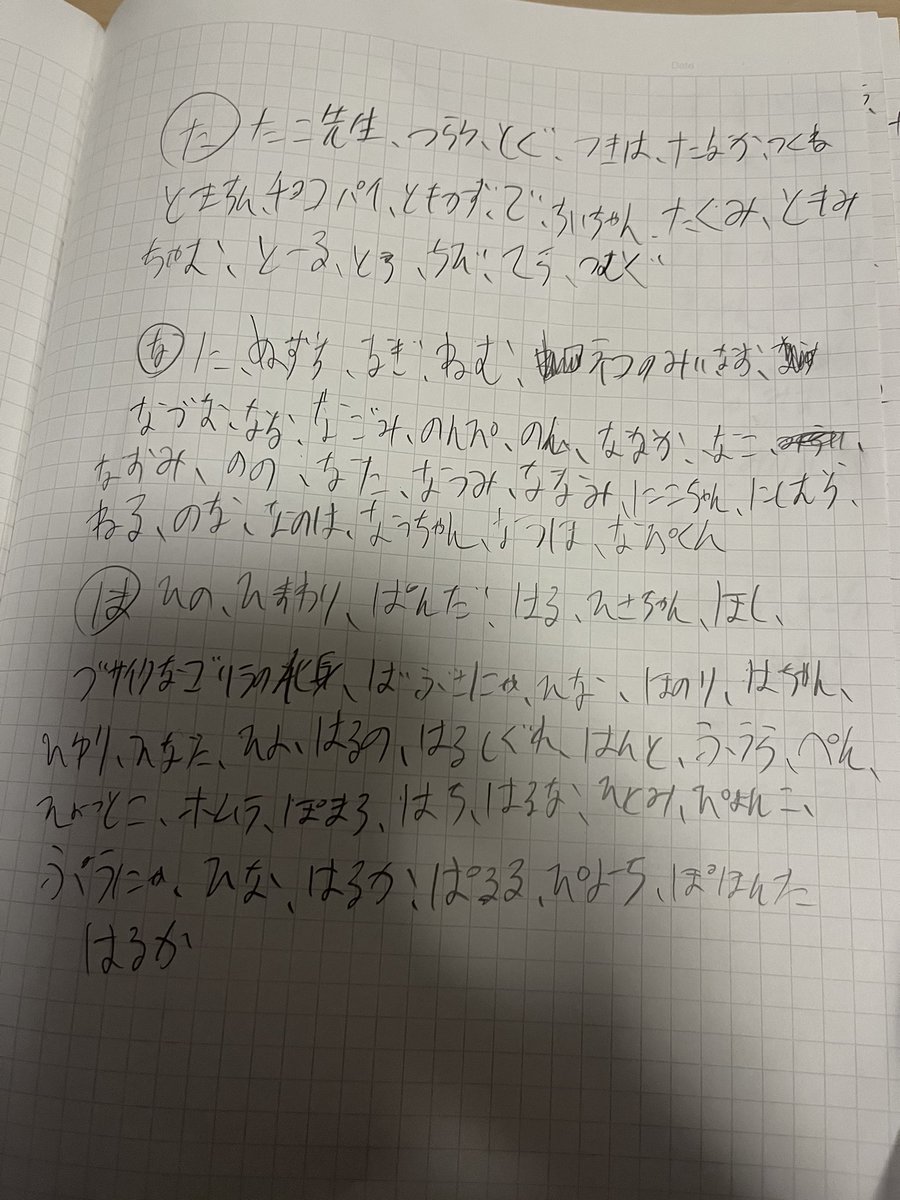 Date
た たこ先生、つらら、とぐ、つきは、たなか、つくね
ときちん、チョコパイ、ともかず、で、ちいちゃん、たくみ、ともみ
ちゃむ、とーる、とろ、ちび、てら、つむぐ
な に、ぬずち、るぎ、ねむ、えつのみい、なお、
なづな、なな、なごみ、のんぺ、のん、ななか、なこ、
なおみ、のの、なた、なつみ、ななみ、にこちゃん、にしむら、
ねる、のな、なのは、なうちゃん、なつほ、なぴくん
は ひの、ひまわり、ぱんだ、はる、ひさちゃん、ほし、
ブサイクなゴリラの化身、ばぶにゃ、ひな、ほのり、はちゃん、
ひゆり、ひなた、ひよ、はるの、はるしぐれ、はんと、ふうら、ぺん、
ひょっとこ、ホムラ、ぽまろ、はち、はるな、ひとみ、ぴよんこ、
ぷうにゃ、ひな、はるか、ぱるる、ぴよーち、ぽほんた
はるか